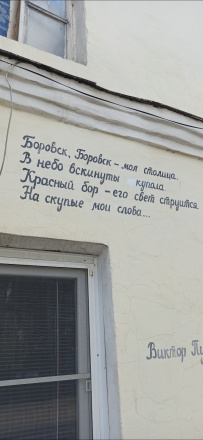 Боровск, Боровск – моя столица.
В небо вскинуты купола.
Красный бор – его свет струится
На скупые мои слова...
Виктор